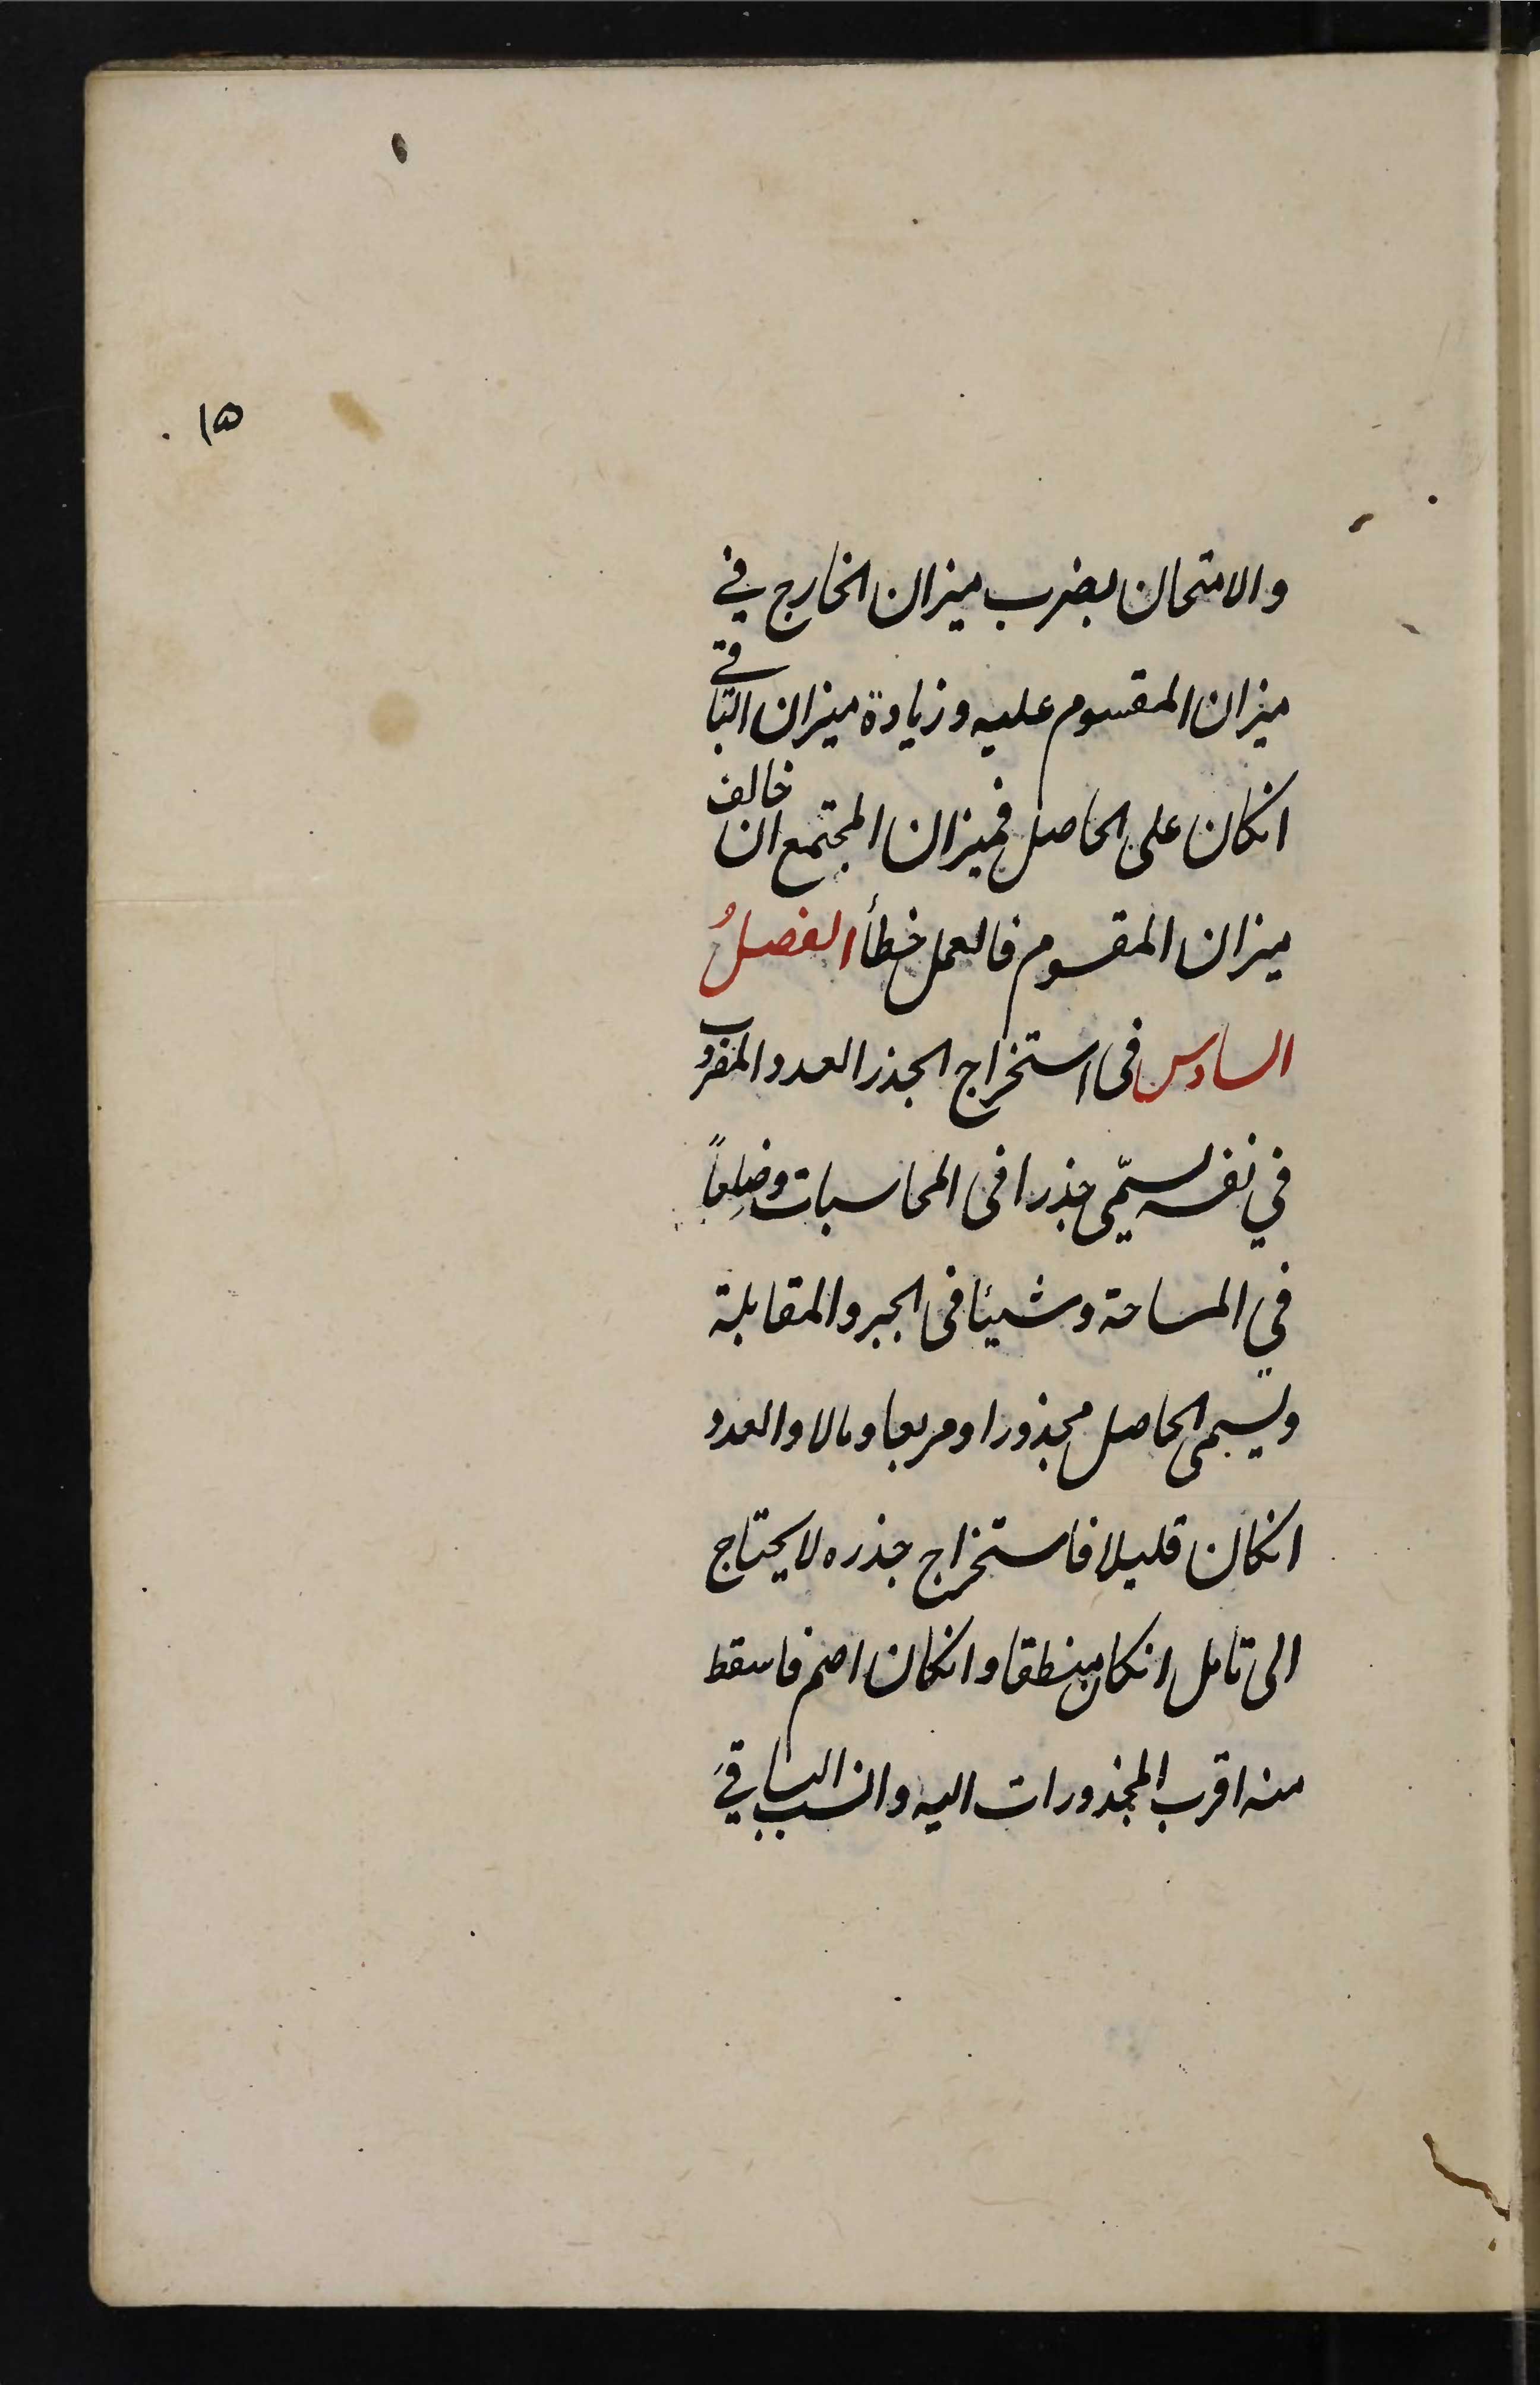 ١٥
والامتحان بضرب ميزان الخارج في
ميزان المقسوم عليه وزيادة ميزان الباقي
انكان على الحاصل فميزان المجتمع ان خالف
ميزان المقسوم فالعمل خطأ الفصلُ
السادس فى استخراج الجذر العدد المضروب
في نفسه يسمّى جذرا فى المحاسبات وضلِعاً
في المساحة وشيئا فى الجبر والمقابلة
ويسمى الحاصل مجذورا ومربعا ومالا والعدد
انكان قليلا فاستخراج جذره لا يحتاج
الى تامل انكان منطقا وانكان اصم فاسقط
منه اقرب المجذورات اليه وانسب الباقي